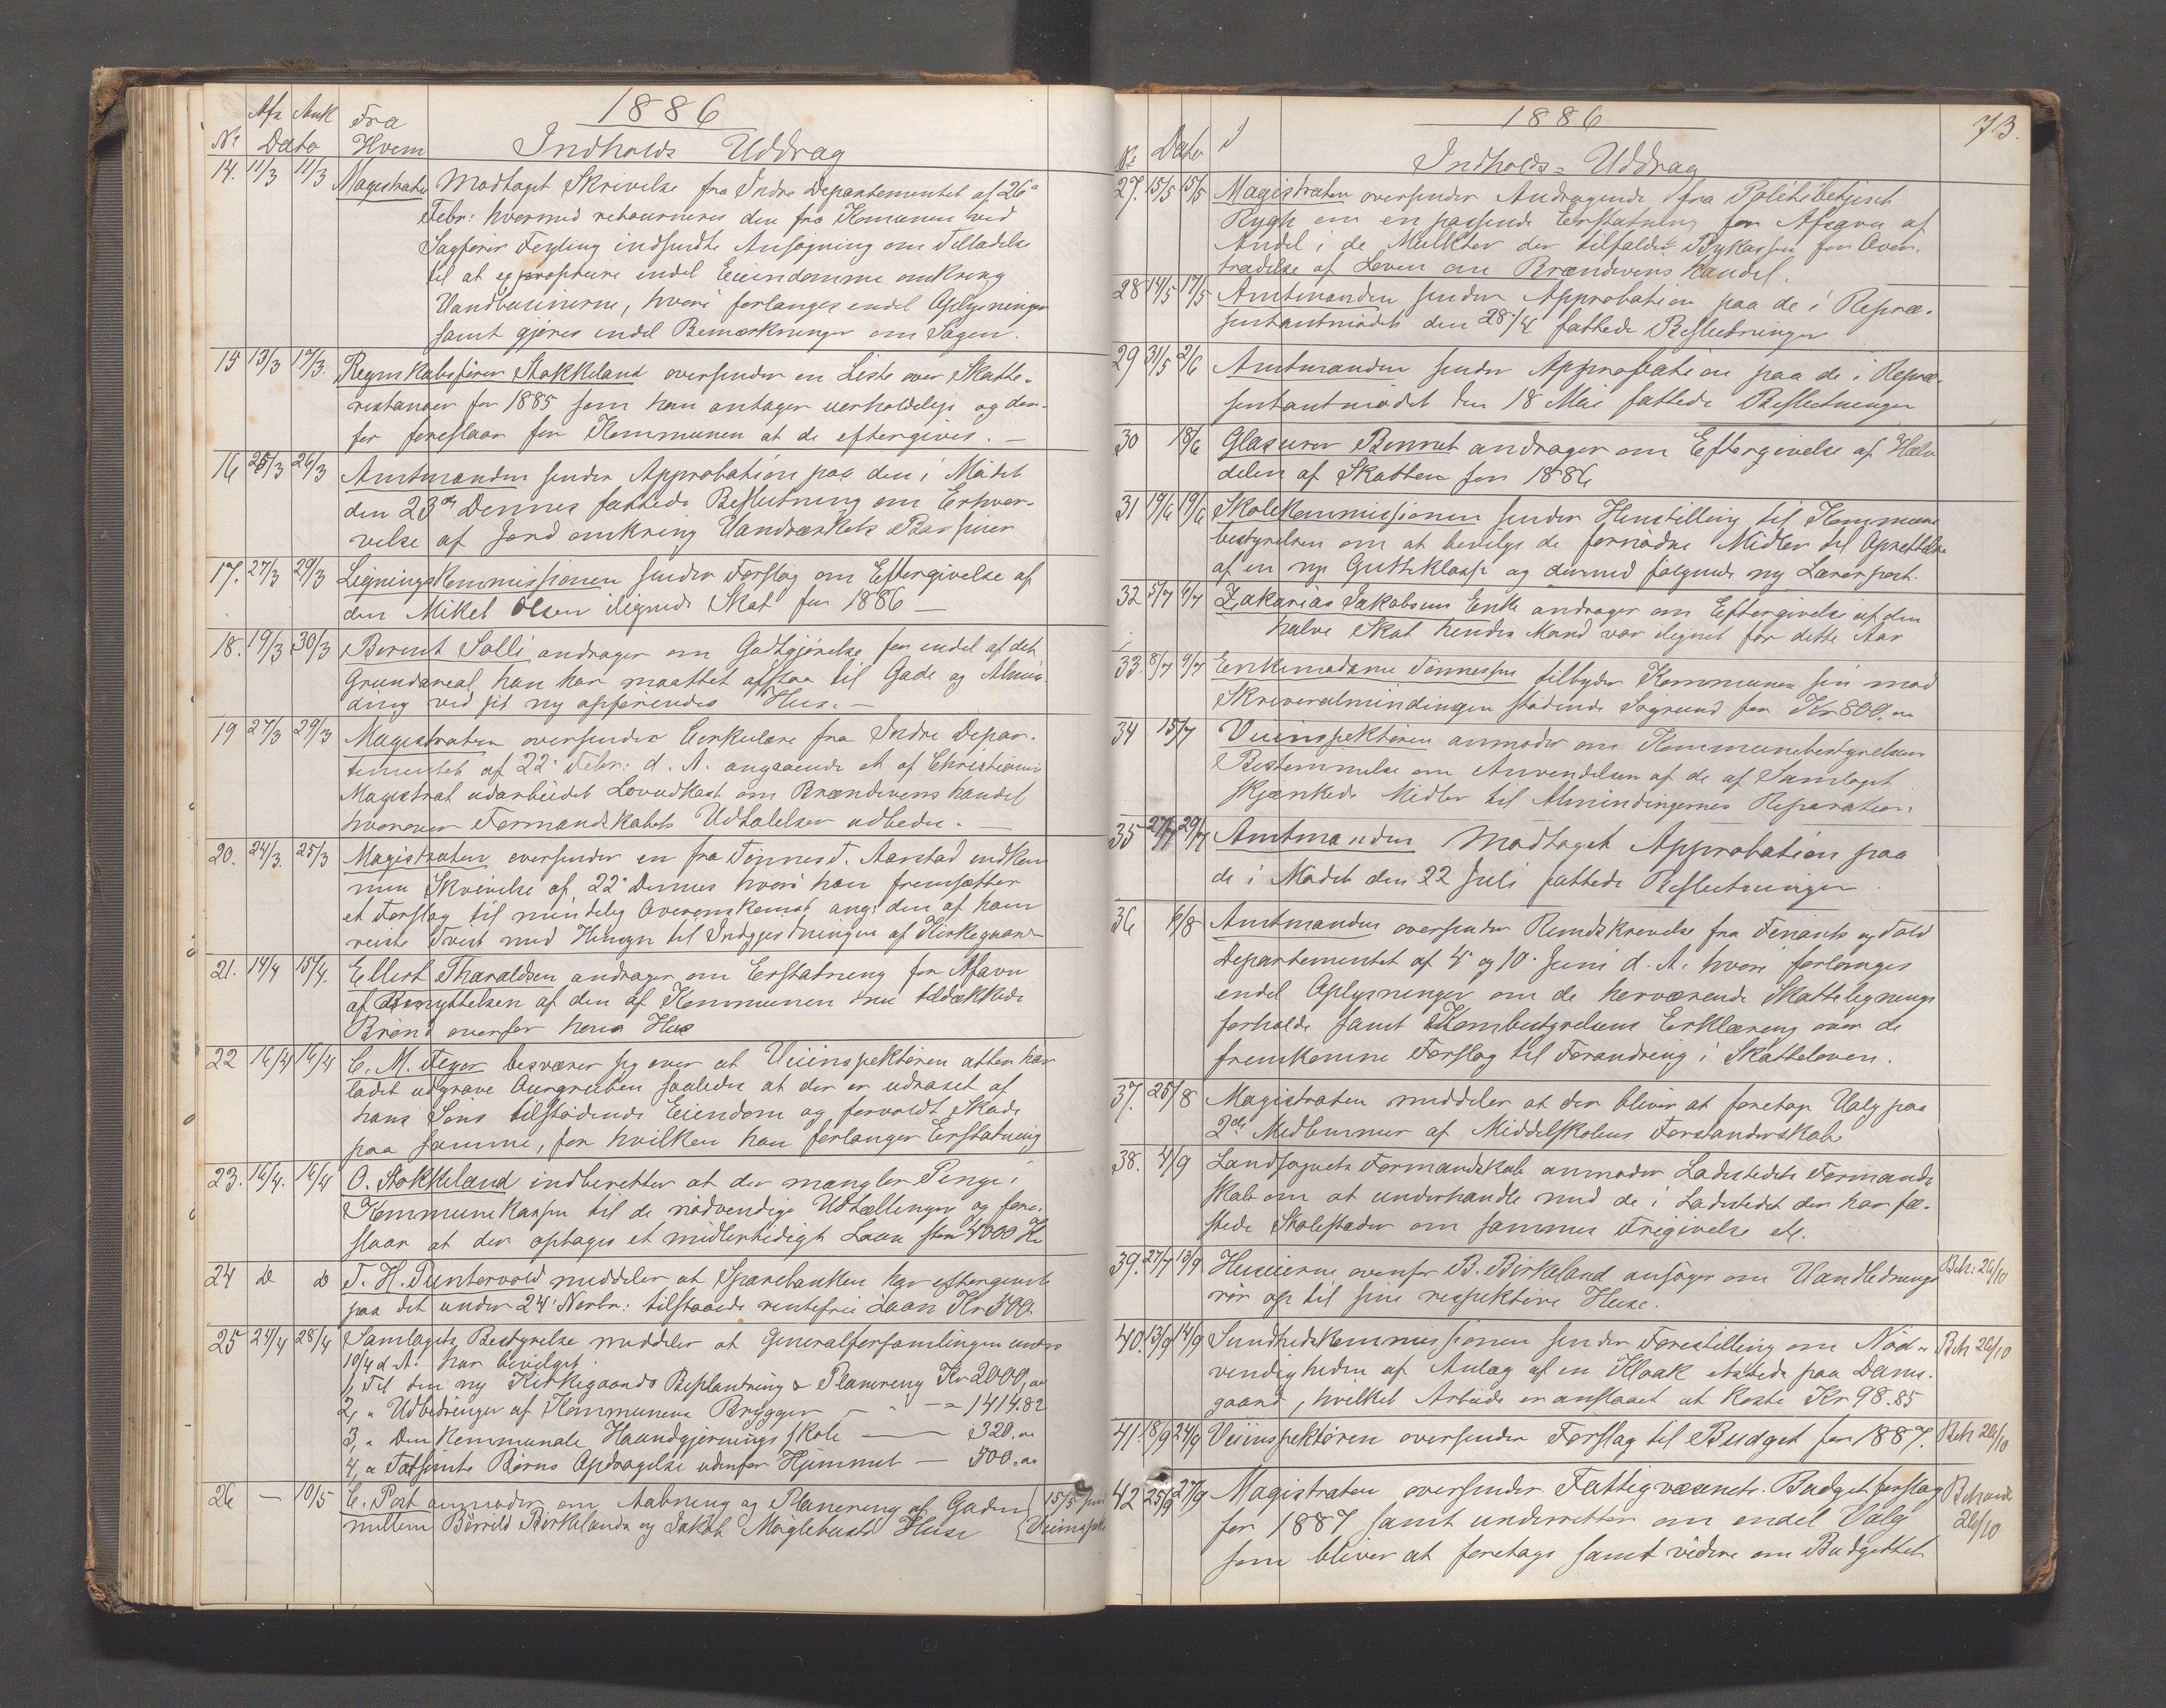 1886
Afs Ank Fra
No Dato Hvem Indholds Uddrag
14. 11/3 11/3 Magistraten Modtaget Skrivelse fra Indre Departementet af 26de
Febr: hvormed retourneres den fra Komunen ved
Sagfører Feyling indsendte Ansøgning om Tilladelse
til at expropriere endel Eiendomme omkring
Vandbasinerne, hvori forlanges endel Oplysninger
samt gjøres endel Bemærkninger om Sagen.
15 13/3 17/3. Regnskabsfører Stokkeland oversender en Liste over Skatte-
restancer for 1885 som han antager uerholdelige og der-
for foreslaar for Kommunen at de eftergives. —
16 25/3 26/3 Amtmanden sender Approbation paa den i Mødet
den 23de Dennes fattede Beslutning om Erhver-
velse af Jord omkring Vandværkets Bassiner
17. 27/3 29/3 Ligningskommissionen sender Forslag om Eftergivelse af
den Mikel Olsen ilignede Skat for 1886 —
18. 19/3 30/3 Berent Salli andrager om Godtgjørelse for endel af det
Grundareal han har maattet afstaa til Gade og Almin-
ding ved sit ny opførendes Hus. —
19 27/3 29/3 Magistraten oversender Cirkulære fra Indre Depar-
tementet af 22de Febr: d. A. angaaende et af Christiania
Magistrat udarbeidet Lovudkast om Brændevinshandel
hvorover Formandskabets Udtalelser udbedes. —
20. 24/3. 25/3 Magistraten oversender en fra Tønnes T. Aarstad indkom
men Skrivelse af 22de Dennes hvori han fremsætter
et Forslag til mindelig Overenskomst ang: den af ham
reiste Tvist med Hensyn til Indgjerdningen af Kirkegaarden
21. 14/4 15/4. Ellert Tharaldsen andrager om Erstatning for Afsavn
af Benyttelsen af den af Kommunen nu tildækkede
Brønd overfor hans Hus
22 16/4 16/4 C. M. Feyer besværer sig over at Veiinspektøren atter har
ladet udgrave Aurgruben saaledes at der er udraset af
hans Søns tilstødende Eiendom og forvoldt Skade
paa samme, for hvilken han forlanger Erstatning
23. 16/4. 16/4 O. Stokkeland indberetter at der mangler Penge i
Kommunekassen til de nødvendige Udtællinger og fore-
slaar at der optages et midlertidigt Laan stort 4000 Kr
24 do do T. H. Puntervold meddeler at Sparebanken har eftergivet
paa det under 24de Novbr: tilstaaede rentefrie Laan Kr 500.
25 24/4 28/4 Samlagets Bestyrelse meddeler at Generalforsamlingen under
10/4 d. A. har bevilget:
1, Til den ny Kirkegaards Beplantning & Planering Kr 2000,00
2, " Udbedringer af Kommunens Brygger — " — " 1414.82
3, " Den Kommunale Haandgjerningsskole — — 320.00
4, " Forsømte Børns Opdragelse udenfor Hjemmet — 500.00
26 — 10/5 C. Post anmoder om Aabning og Planering af Gaden
mellem Børrild Birkelands og Jakob Møglebusts Huse
15/5 sendt
Veiinspekt
1886 73.
No Dato Indholds-Uddrag
27. 15/5 15/5 Magistraten oversender Andragende fra Politibetjent
Rygh om en passende Erstatning for Afsavn af
Andel i de Mulkter der tilfalder Bykassen for Over-
trædelse af Loven om Brændevins handel.
28 14/5 17/5 Amtmanden sender Approbation paa de i Repræ-
sentantmødet den 28/4 fattede Beslutninger
29 31/5 2/6 Amtmanden sender Approbation paa de i Repræ-
sentantmødet den 18 Mai fattede Beslutninger
30 18/6 Glasurer Bennet andrager om Eftergivelse af Halv
delen af Skatten for 1886
31 19/6 19/6 Skolekommissionen sender Henstilling til Kommune
bestyrelsen om at bevilge de fornødne Midler til Oprettelse
af en ny Gutteklasse og dermed følgende ny Lærerpost.
32 5/7 6/7 Zakarias Jakobsens Enke andrager om Eftergivelse af den
halve Skat hendes Mand var ilignet for dette Aar
33. 8/7 9/7 Enkemadame Tønnessen tilbyder Kommunen sin mod
Skriveralmindingen stødende Søgrund for Kr 800.00
34 15/7 Veiinspektøren anmoder om Kommunebestyrelsens
Bestemmelse om Anvendelsen af de af Samlaget
skjænkede Midler til Almindingernes Reparation.
35 27/7 29/7 Amtmanden Modtaget Approbation paa
de i Mødet den 22 Juli fattede Beslutninger.
36 6/8 Amtmanden oversender Rundskrivelse fra Finants og Told
Departementet af 4de og 10de Juni d. A. hvori forlanges
endel Oplysninger om de herværende Skattelignings
forholde samt Kombestyrelsens Erklæring over de
fremkomne Forslag til Forandring i Skatteloven.
37. 25/8 Magistraten meddeler at der bliver at foretage Valg paa
2de Medlemmer af Middelskolens Forstanderskab
38. 4/9 Landsognets Formandskab anmoder Ladestedets Formands
skab om at underhandle med de i Ladestedet der har fæ-
stede Skolestader om sammes Frigivelse etc.
39. 27/7 13/9 Huseierne ovenfor B. Birkeland ansøger om Vandlednings
rør op til sine respektive Huse. Beh: 26/10
40. 13/9 14/9 Sundhedskommissionen sender Forestilling om Nød-
vendigheden af Anlæg af en Kloak etsteds paa Dams-
gaard, hvilket Arbeide er anslaaet at koste Kr 98.85 Beh 26/10
41 18/9 24/9 Veiinspektøren oversender Forslag til Budget for 1887. Beh 26/10
42 25/9 27/9 Magistraten oversender Fattigvæsenets Budgetforslag
for 1887 samt underretter om endel Valg
som bliver at foretage samt videre om Budgettet
26/10